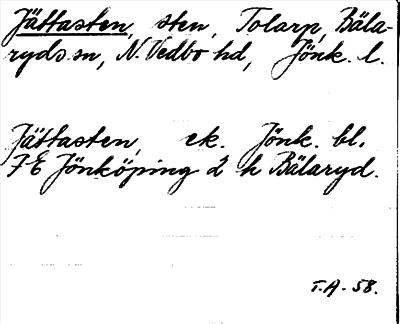 Jättasten, sten, Tolarp, Bäla-
ryds sn, N. Vedbo hd, Jönk. l.
Jättasten, ek. Jönk. bl.
7E Jönköping 2 h Bälaryd.
T.A - 58.